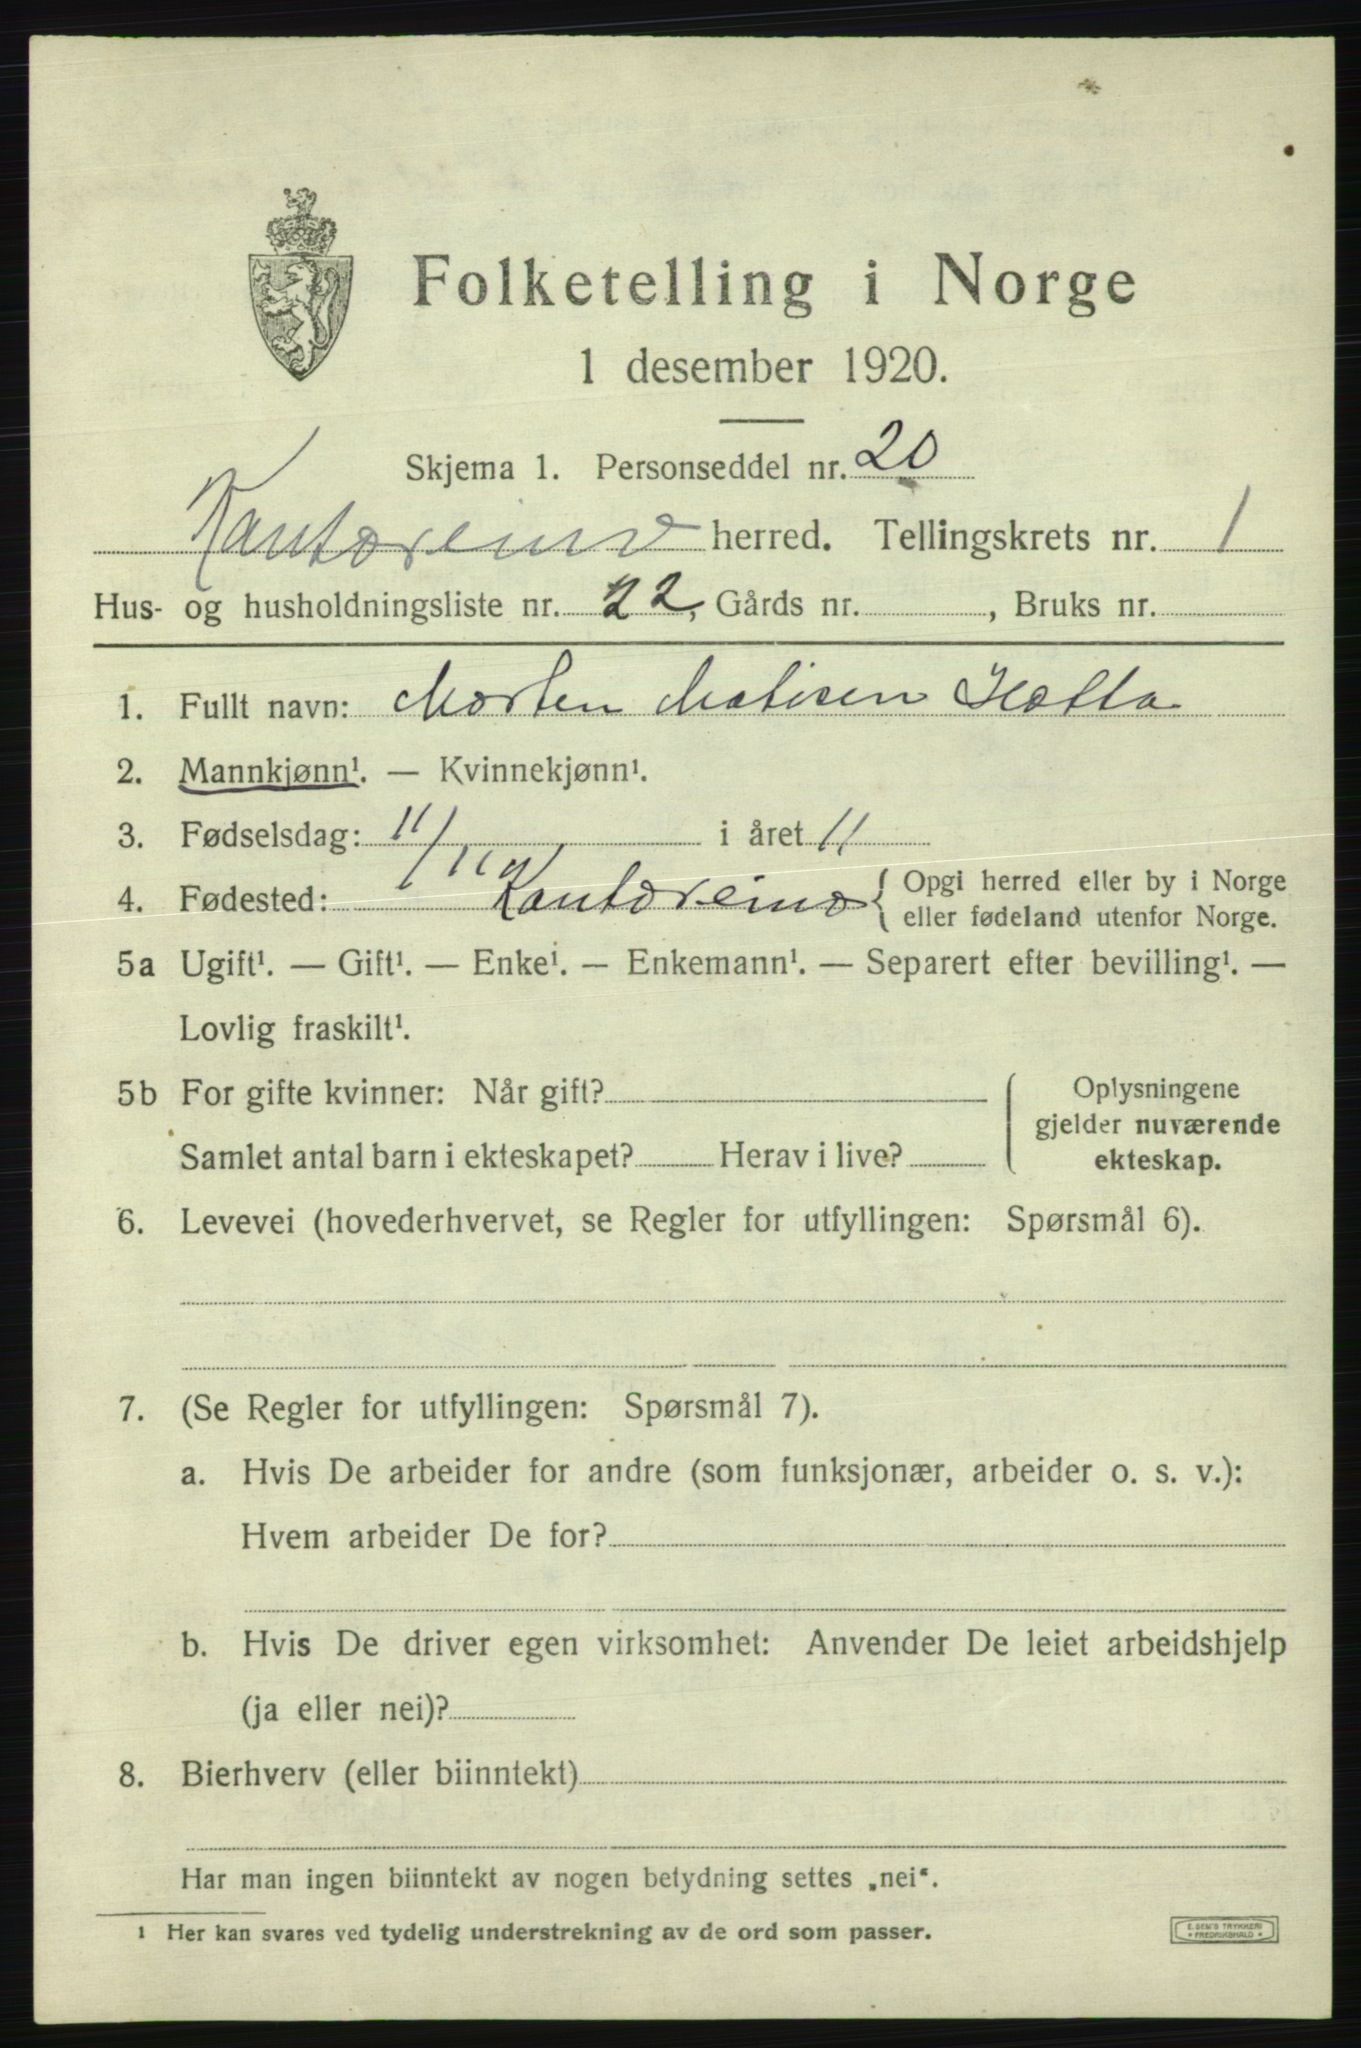 Folketelling i Norge
1 desember 1920.
Skjema 1. Personseddel nr. 20
Kautokeino herred. Tellingskrets nr. 1
Hus- og husholdningsliste nr. 22, Gårds nr. , Bruks nr.
1. Fullt navn: Morten Matisen Hætta
2. Mannkjønn¹. — Kvinnekjønn¹.
3. Fødselsdag: 11/11 i året 11
4. Fødested: Kautokeino { Opgi herred eller by i Norge
eller fødeland utenfor Norge.
5a Ugift¹. — Gift¹. — Enke¹. — Enkemann¹. — Separert efter bevilling¹. —
Lovlig fraskilt¹.
5b For gifte kvinner: Når gift?
Samlet antal barn i ekteskapet? Herav i live?
Oplysningene
gjelder nuværende
ekteskap.
6. Levevei (hovederhvervet, se Regler for utfyllingen: Spørsmål 6).
7. (Se Regler for utfyllingen: Spørsmål 7).
a. Hvis De arbeider for andre (som funksjonær, arbeider o. s. v.):
Hvem arbeider De for?
b. Hvis De driver egen virksomhet: Anvender De leiet arbeidshjelp
(ja eller nei)?
8. Bierhverv (eller biinntekt)
Har man ingen biinntekt av nogen betydning settes „nei“.
¹ Her kan svares ved tydelig understrekning av de ord som passer.
E. SEM'S TRYKKERI
* FREDRIKSHALD *